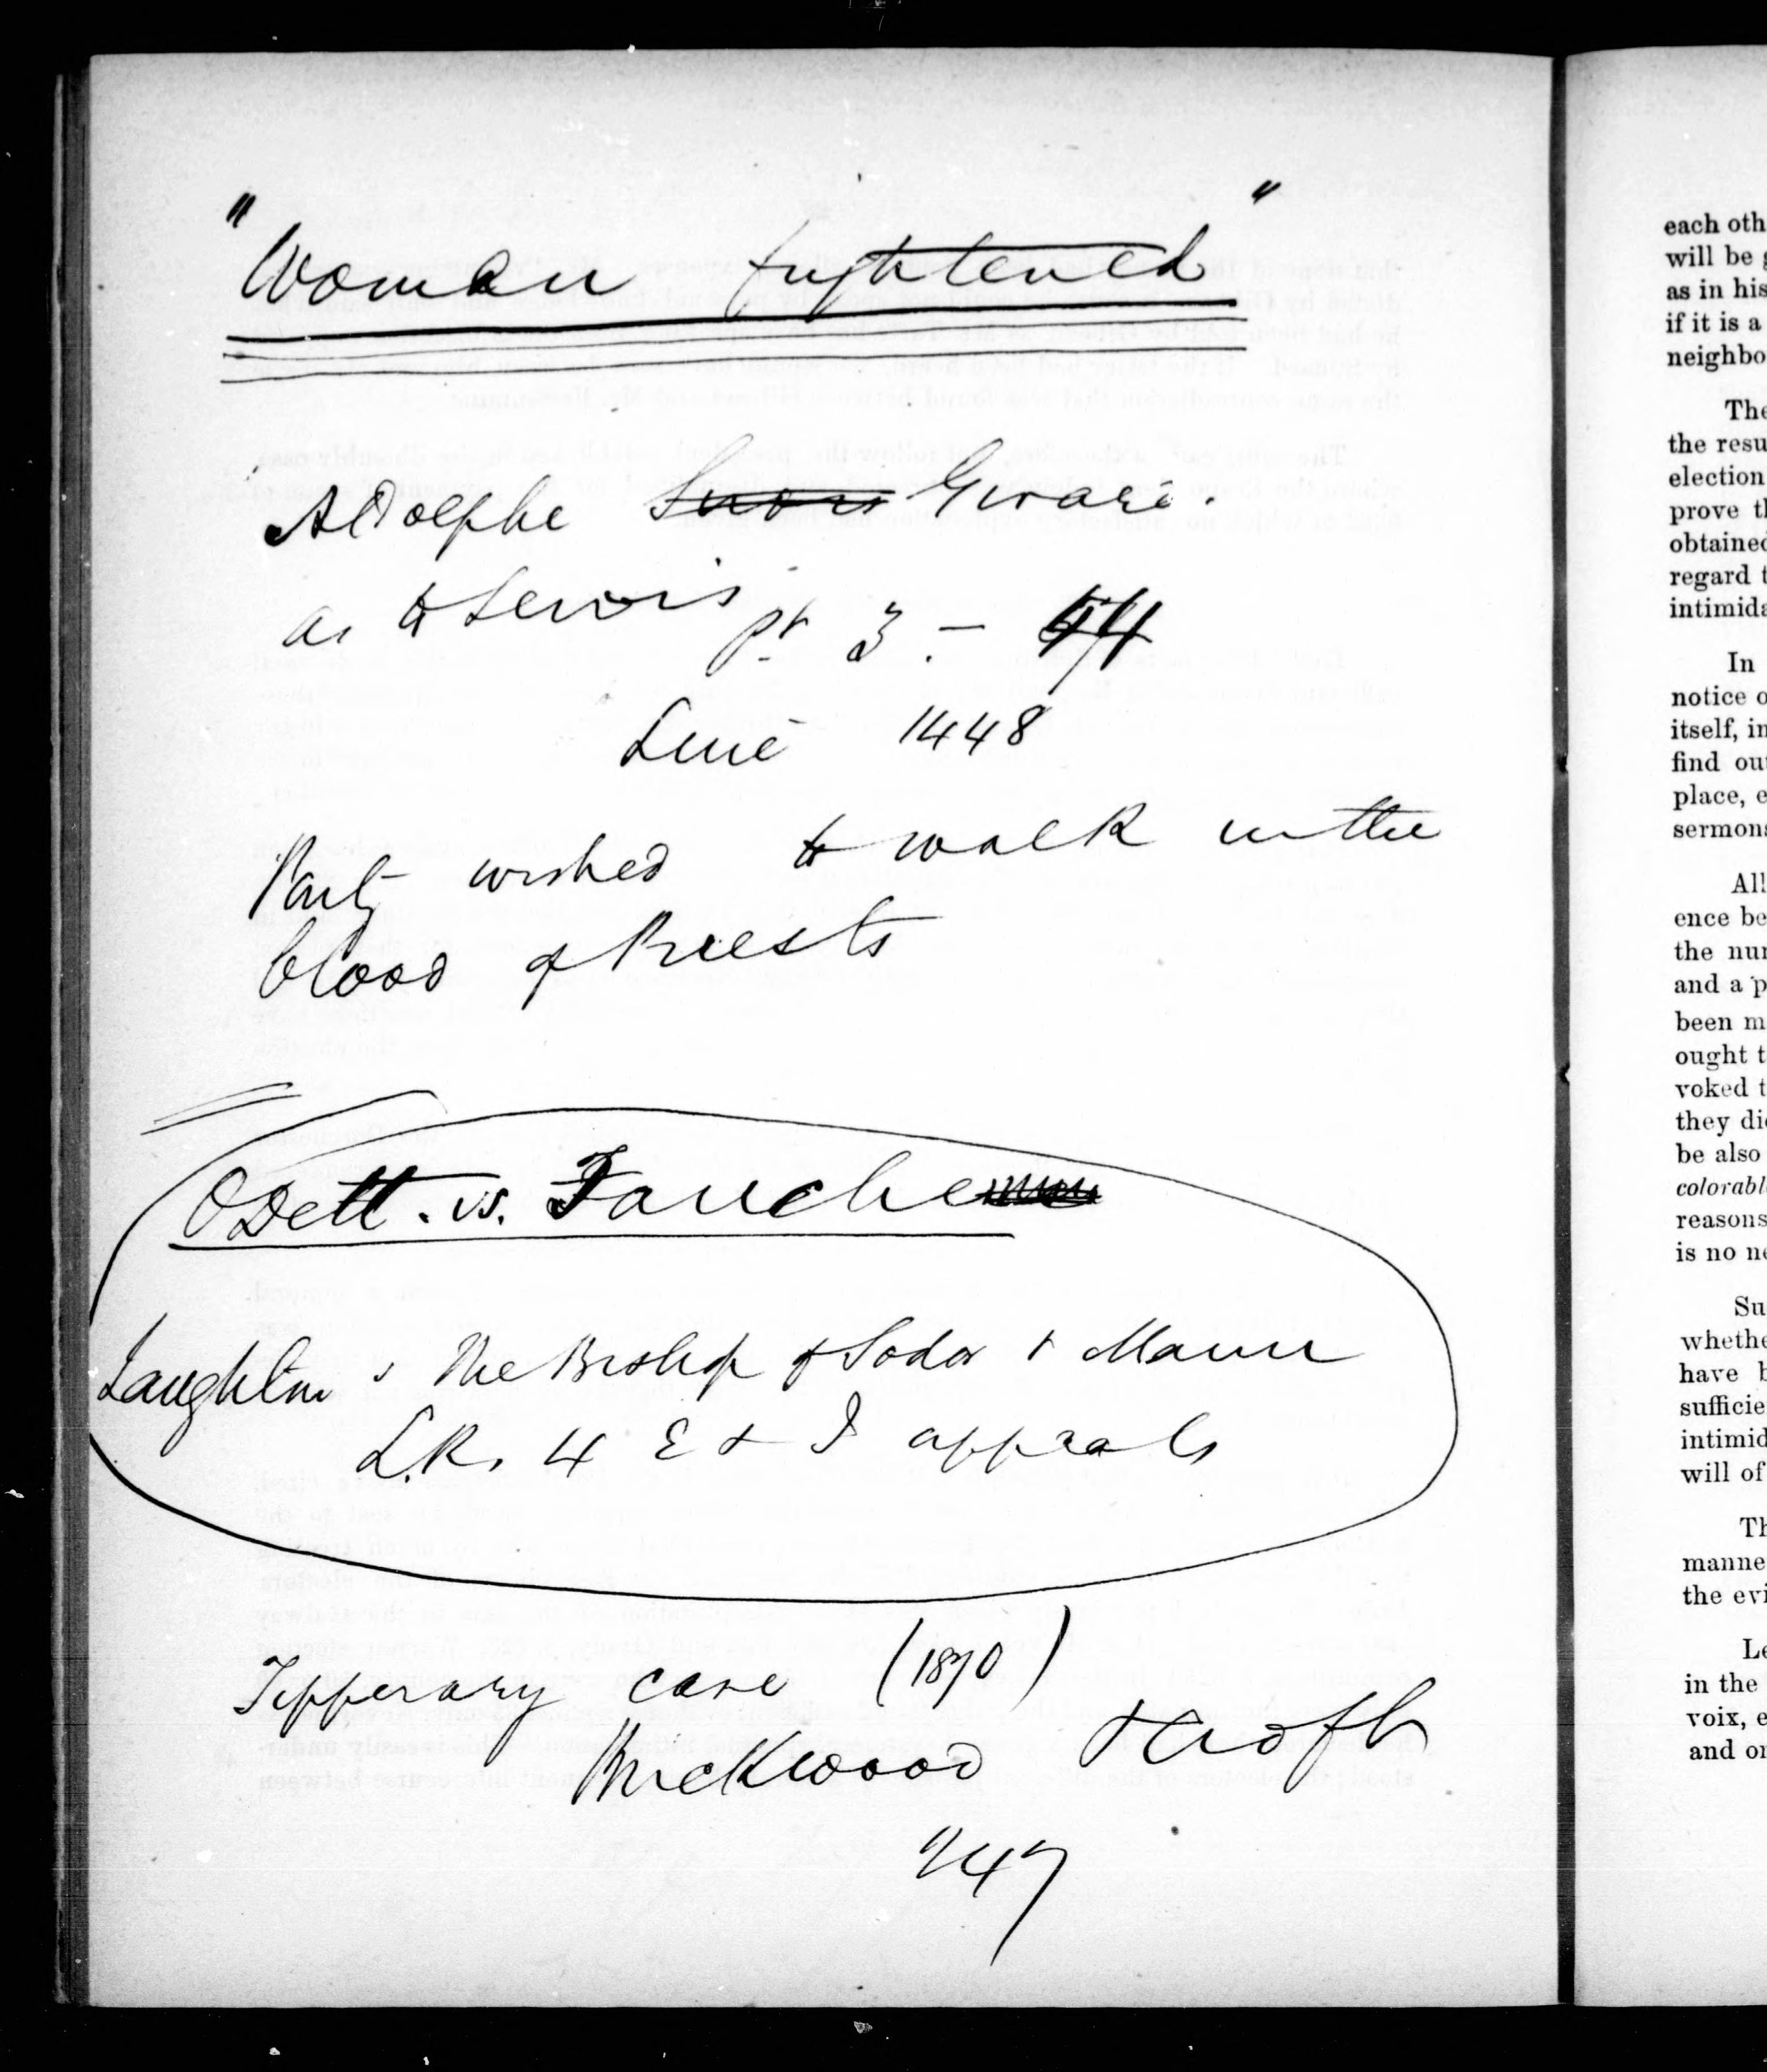 "Woman frightened"
Adolphe Girard.
as to Lewis pt 3 - 54
Line 1448
Party wished to walk in the
blood of Priests
Odett. vs. Fauche
Laughton v The Bishop of Sodor & Mann
L.R. 4 E & I appeals
Tipperary case (1870)
Brickwood & Croft
247
each oth
will be g
as in his
if it is a
neighbo
The
the resu
election
prove th
obtained
regard t
intimida
In
notice o
itself, in
find out
place, e
sermons
All
ence be
the num
and a p
been m
ought t
voked t
they di
be also
colorabl
reasons
is no ne
Su
whethe
have b
sufficie
intimid
will of
Th
manne
the evi
Le
in the
voix, e
and or